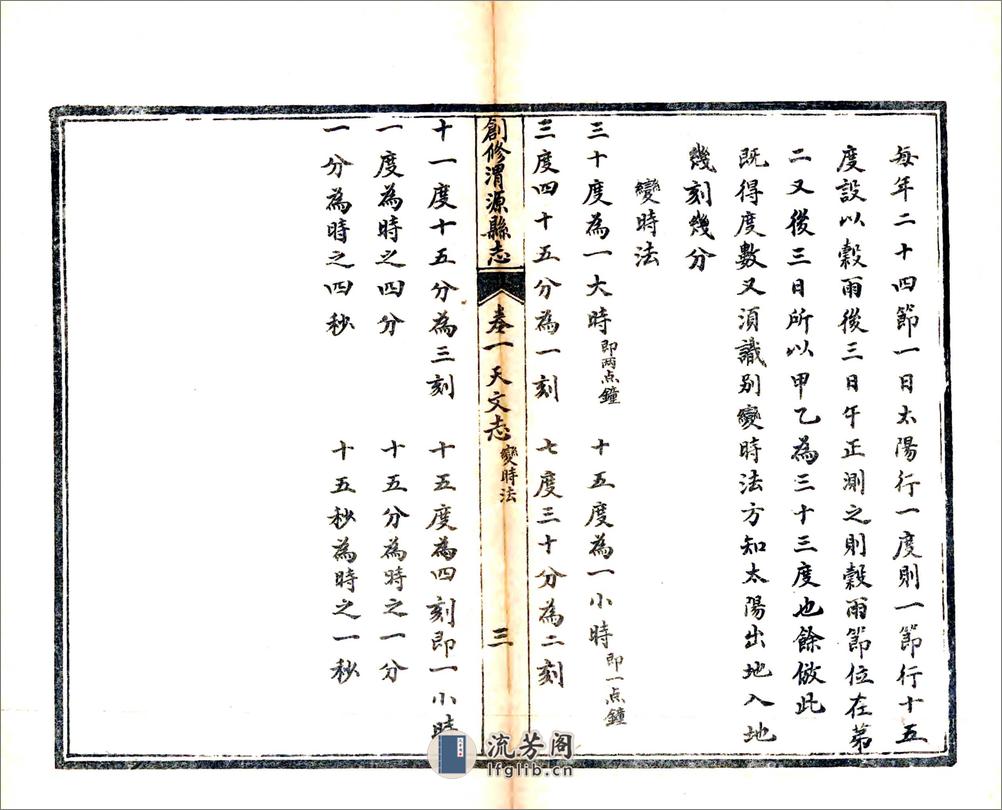 每年二十四節一日太陽行一度則一節行十五
度設以穀雨後三日午正測之則穀雨節位在第
二又後三日所以甲乙為三十三度也餘倣此
既得度數又須識别變時法方知太陽出地入地
幾刻幾分
變時法
三十度為一大時即兩点鐘 十五度為一小時即一点鐘
三度四十五分為一刻 七度三十分為二刻
創修渭源縣志 卷一 天文志 變時法 三
十一度十五分為三刻 十五度為四刻即一小時
一度為時之四分 十五分為時之一分
一分為時之四秒 十五秒為時之一秒
流芳阁
lfglib.cn